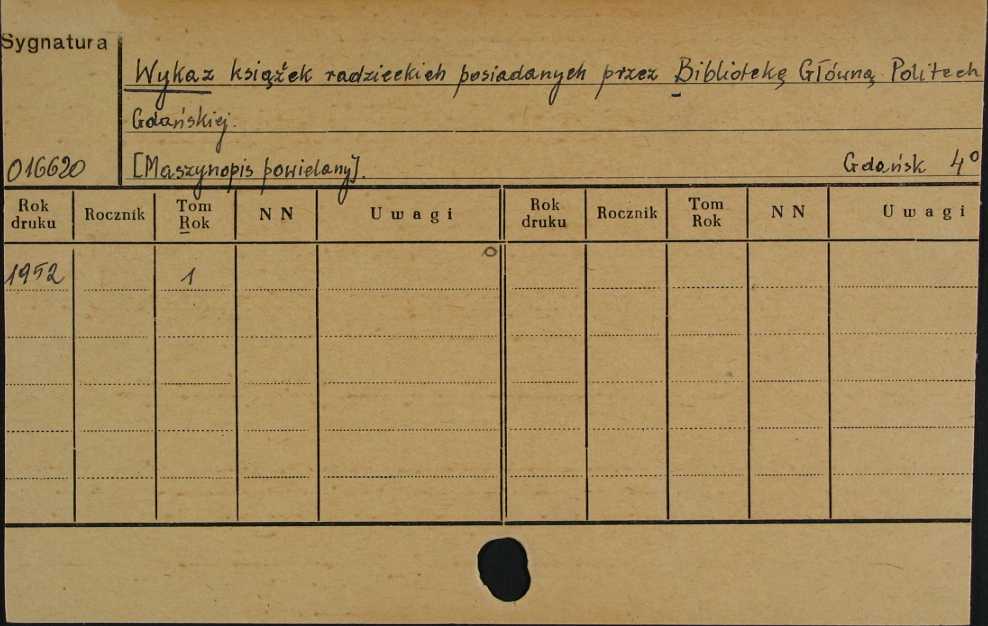 Sygnatura
Wykaz książek radzieckich posiadanych przez Bibliotekę Główną Politech
Gdańskiej.
016620 [Maszynopis powielany]. Gdańsk 4⁰
Rok druku Rocznik Tom Rok N N Uwagi Rok druku Rocznik Tom Rok N N Uwagi
1952 1